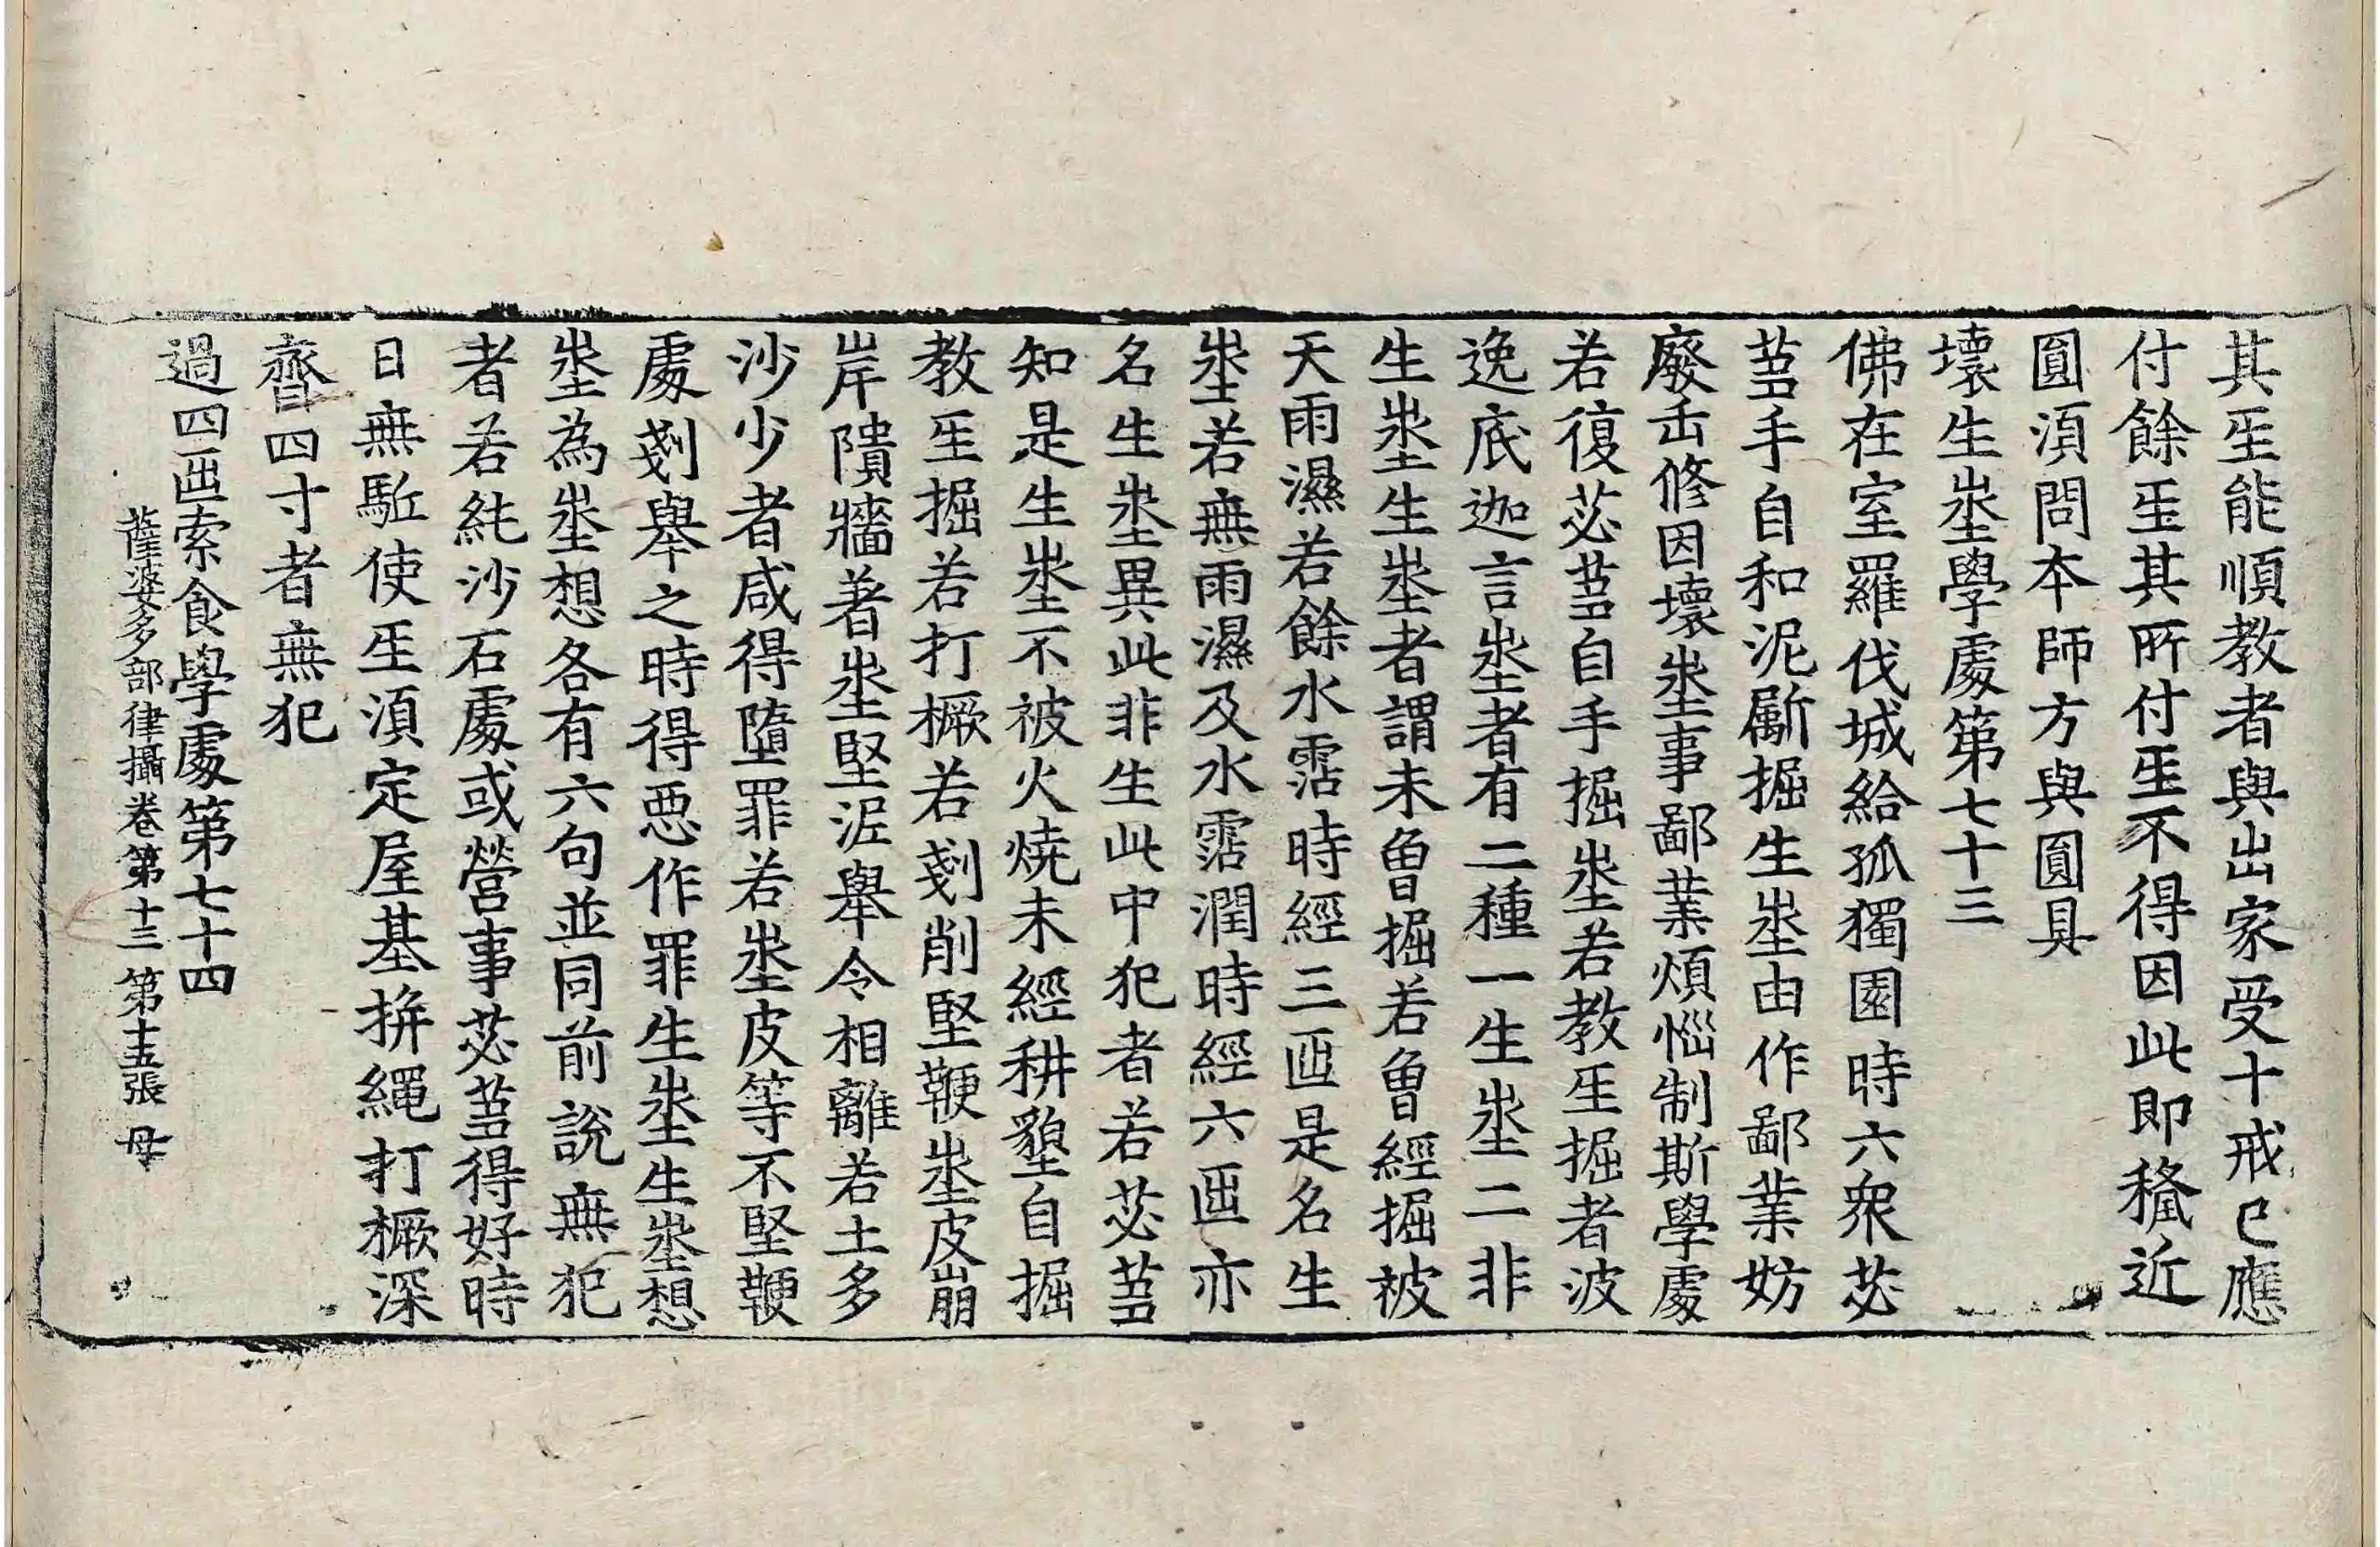 其𤯔能順教者與出家受十戒已應
付餘𤯔其所付𤯔不得因此即稱近
圓湏問本師方與圓具
壞生埊學處第七十三
佛在室羅伐城給孤獨園時六衆苾
蒭手自和泥斸掘生埊由作鄙業妨
廢缶修因壞埊事鄙業煩惱制斯學處
若復苾蒭自手掘埊若教𤯔掘者波
逸底迦言埊者有二種一生埊二非
生埊生埊者謂未曾掘若曾經掘被
天雨濕若餘水霑時經三𠥱是名生
埊若無雨濕及水霑潤時經六𠥱亦
名生埊異此非生此中犯者若苾蒭
知是生埊不被火燒未經耕墾自掘
教𤯔掘若打橛若剗削堅鞕埊皮崩
岸隤牆著埊堅泥舉令相離若土多
沙少者咸得墮罪若埊皮等不堅鞕
處剗舉之時得惡作罪生埊生埊想
埊為埊想各有六句並同前說無犯
者若純沙石處或營事苾蒭得好時
日無駈使𤯔湏定屋基拼繩打橛深
齊四寸者無犯
過四𠥱索食學處第七十四
薩婆多部律攝卷第十三 第十五張 母